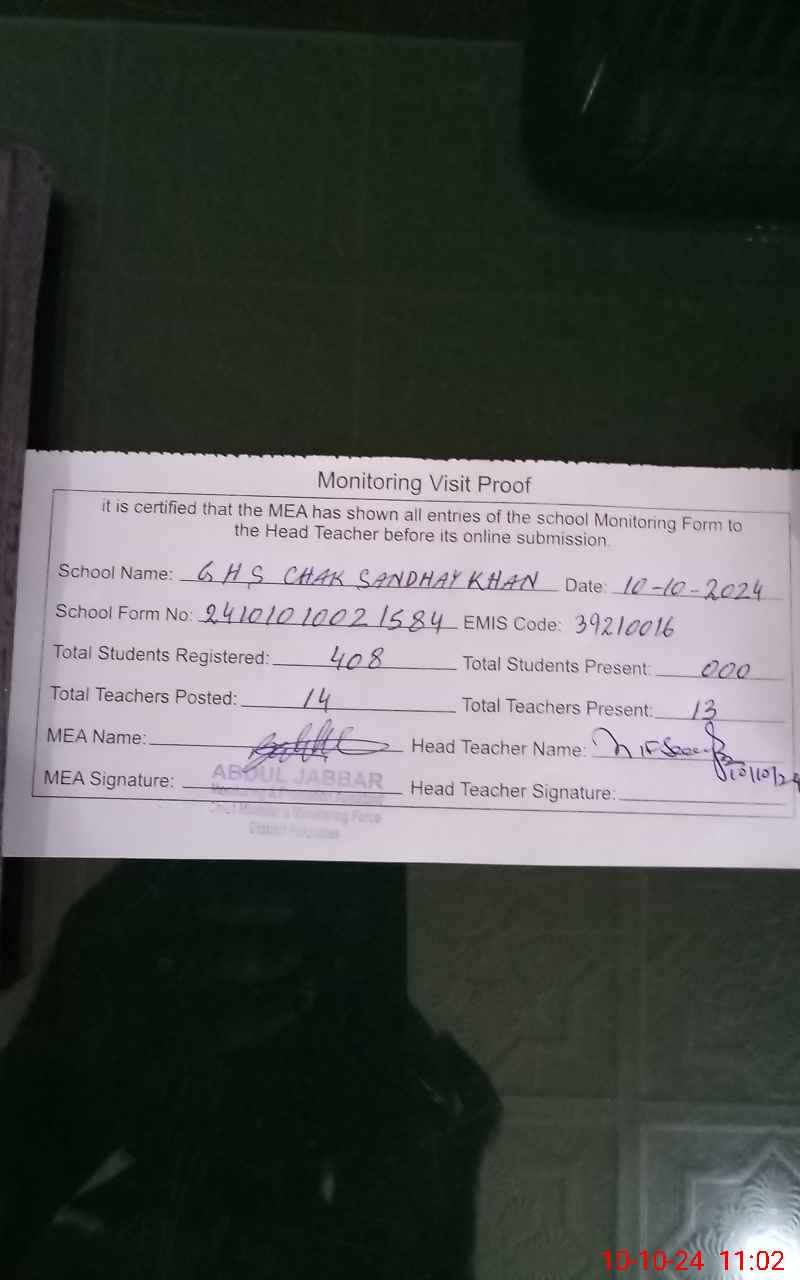 Monitoring Visit Proof
it is certified that the MEA has shown all entries of the school Monitoring Form to
the Head Teacher before its online submission.
School Name: G H S CHAK SANDHAY KHAN Date: 10-10-2024
School Form No: 2410101002 1584 EMIS Code: 39210016
Total Students Registered: 408 Total Students Present: 000
Total Teachers Posted: 14 Total Teachers Present: 13
MEA Name: Head Teacher Name:
10/10/24
MEA Signature: ABDUL JABBAR Head Teacher Signature:
Monitoring Force
District
10-10-24 11:02